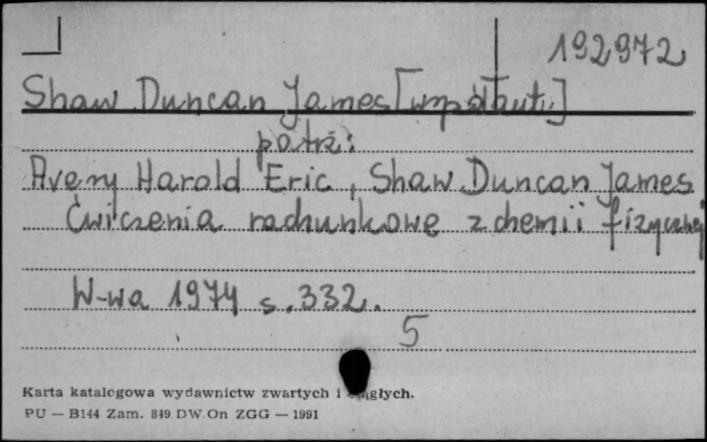 192972
Shaw Duncan James [współaut.]
patrz:
Avery Harold Eric, Shaw Duncan James
Ćwiczenia rachunkowe z chemii fizycznej
W-wa 1974 s. 332.
5
Karta katalogowa wydawnictw zwartych i
PU — B144 Zam. 849 DW On ZGG — 1991